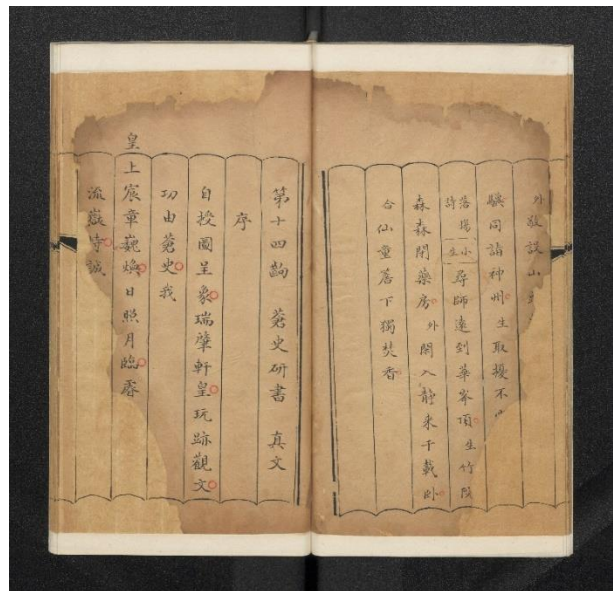 外扱談山
同詣神州生取擾不
落場詩 小生 尋師遠到華峯頂生竹院
森森閉藥房外閒入靜來千載卧
合仙童若下獨焚香
第十四齣 蒼史研書 真文
序
自授圖呈象瑞肇軒皇玩跡觀文
功由蒼史我
皇上宸章巍煥日照月臨
流嶽峙誠